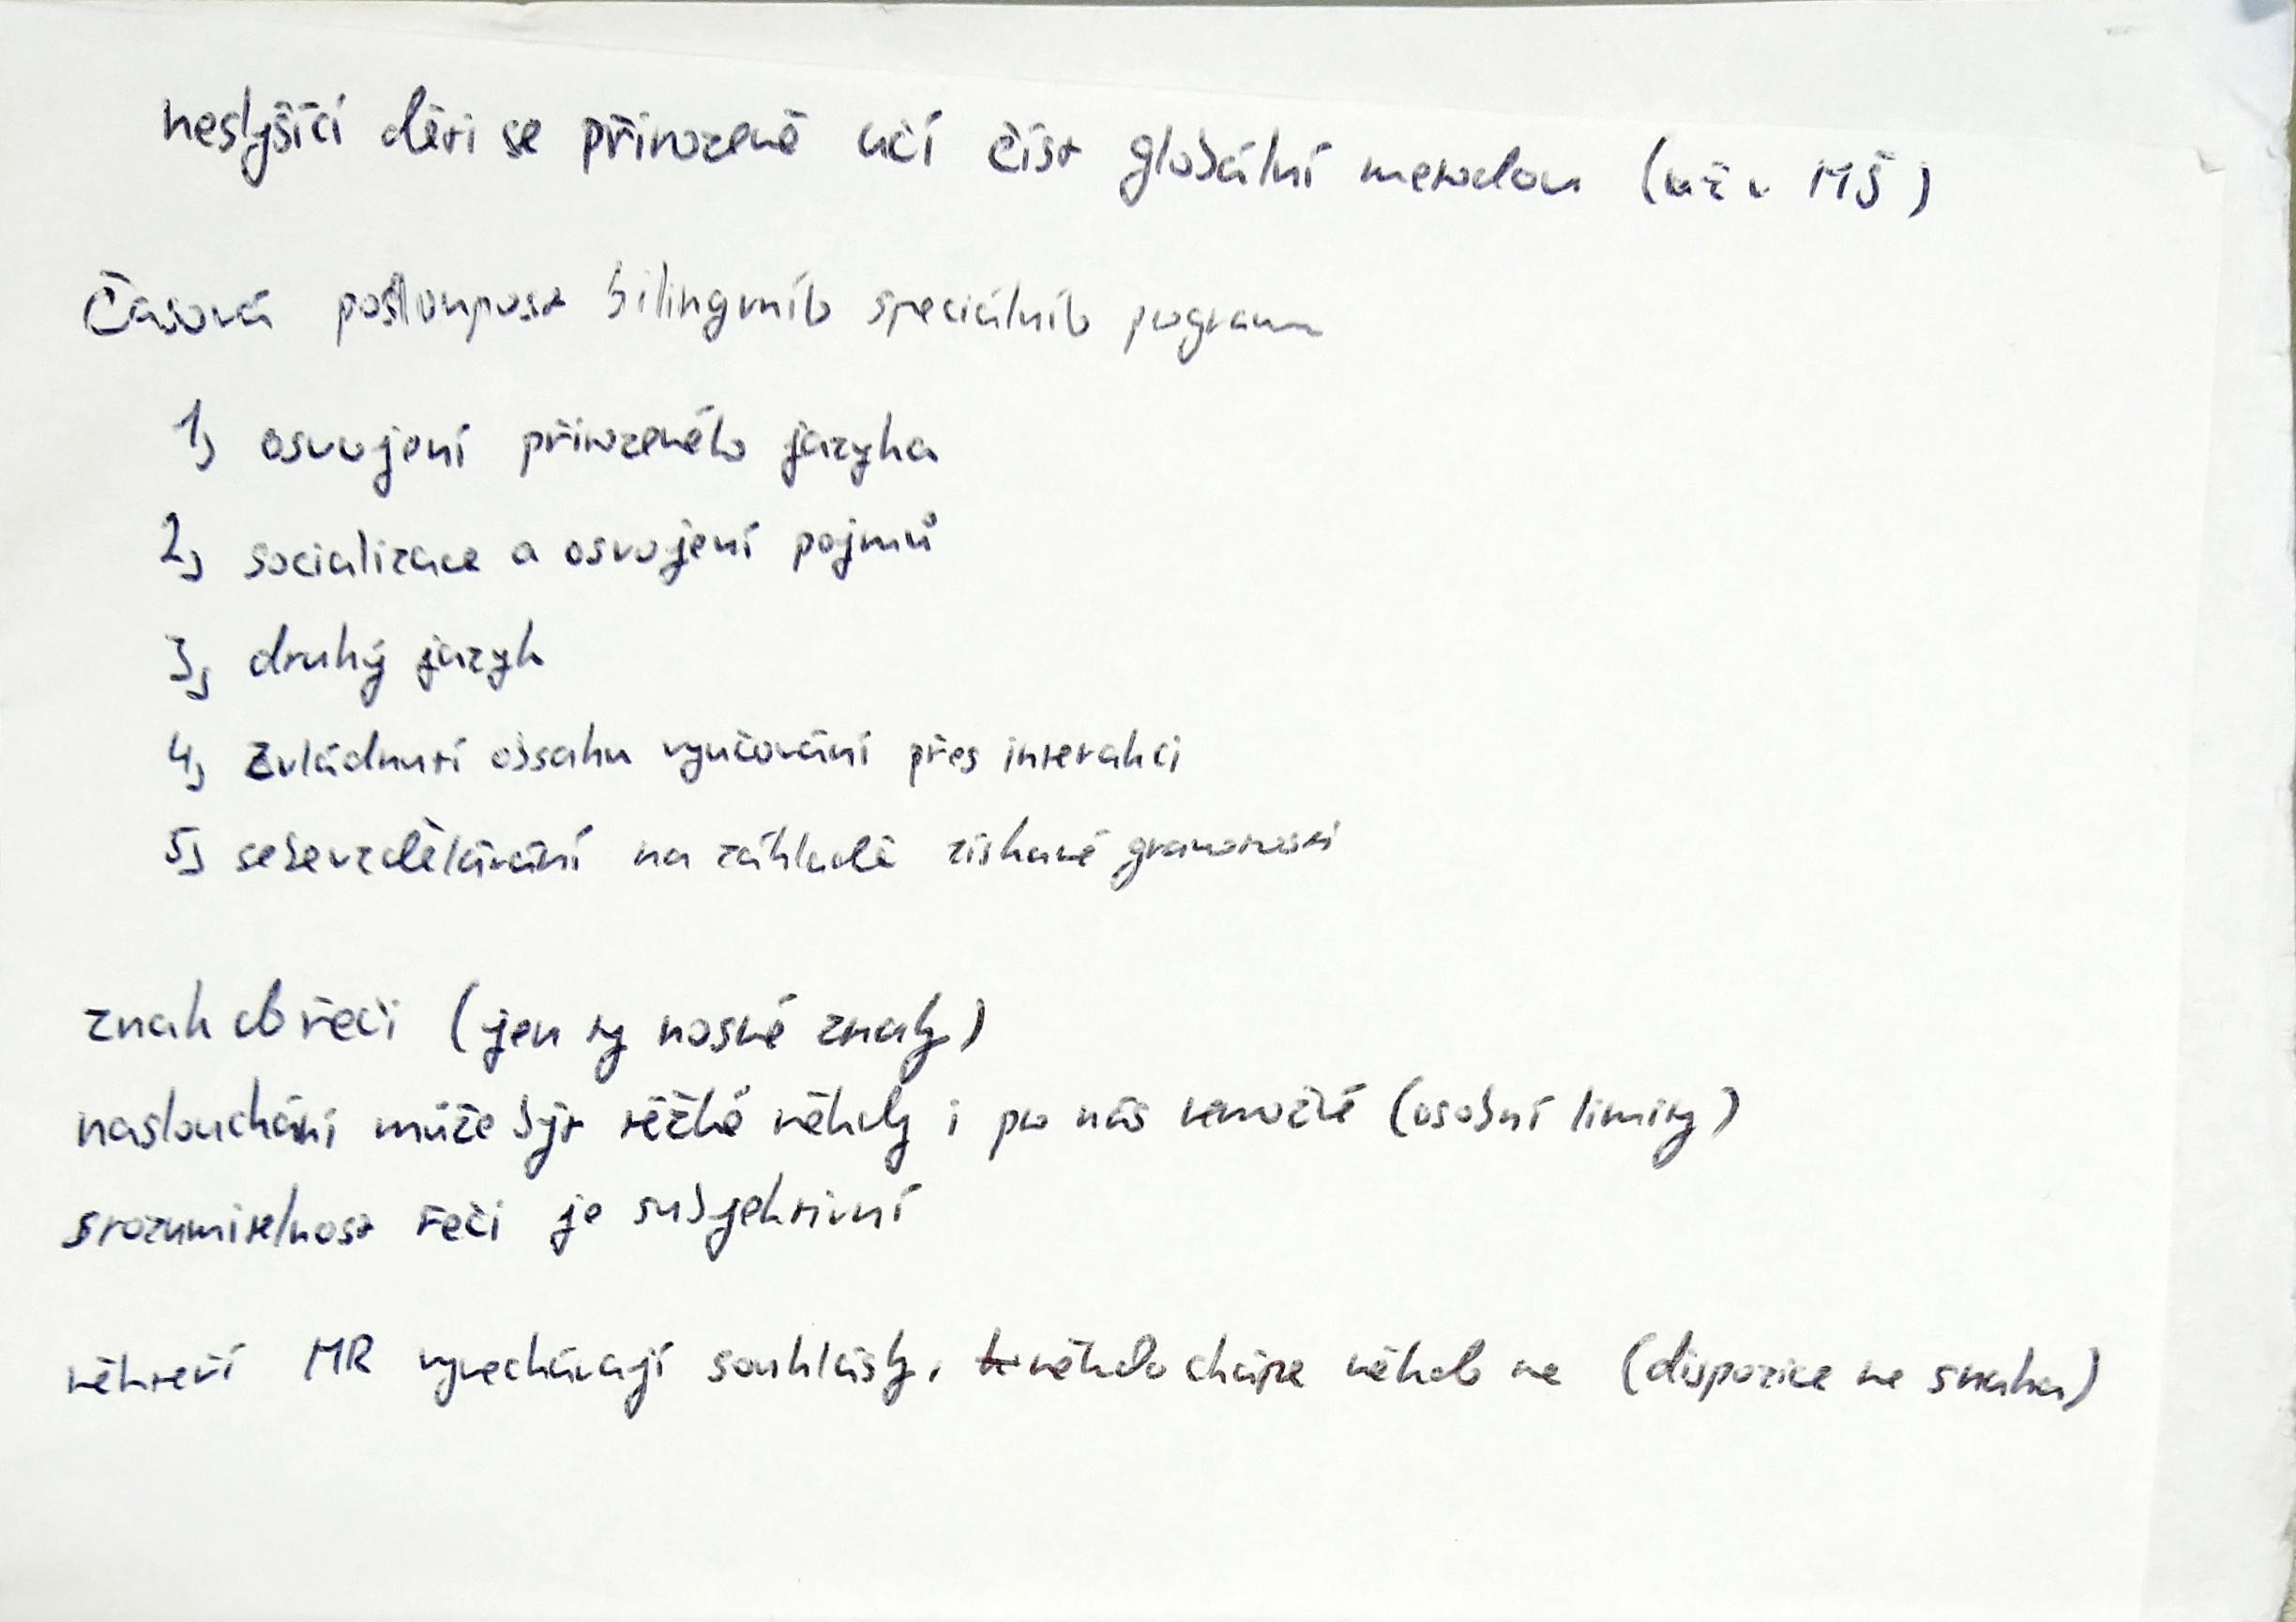 neslyšící děti se přirozeně učí číst globální metodou (už v MŠ)
Časová posloupnost bilingvního speciálního programu
1, osvojení přirozeného jazyka
2, socializace a osvojení pojmů
3, druhý jazyk
4, zvládnutí obsahu vyučování přes interakci
5, sebevzdělávání na základě získané gramotnosti
znak do řeči (jen ty nosné znaky)
naslouchání může být těžké někdy i pro nás nemožné (osobní limity)
srozumitelnost řeči je subjektivní
někteří MR vynechávají souhlásky, někdo chápe někdo ne (dispozice ne snaha)